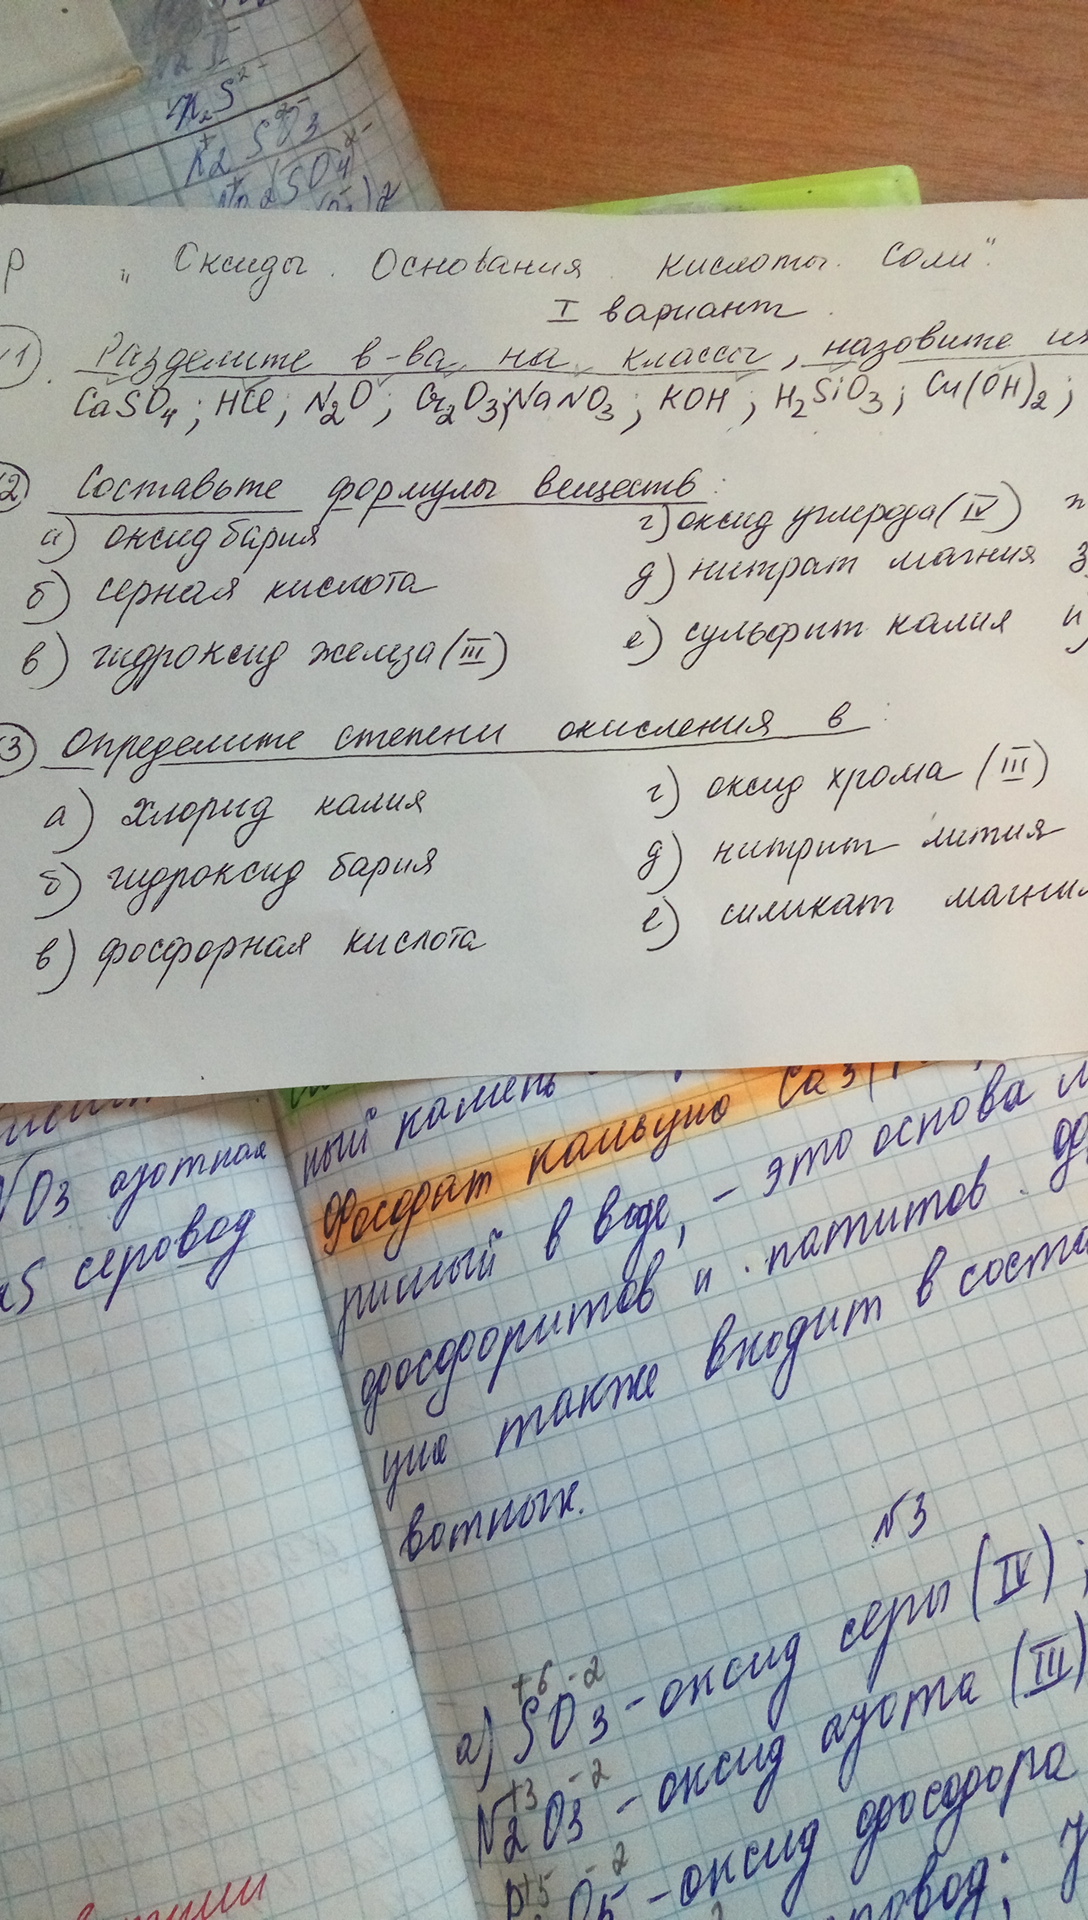 K2SO3
Na2SO4
р "Оксиды. Основания. Кислоты. Соли".
I вариант.
1). Разделите в-ва на классы, назовите их
CaSO4; HCl; N2O; Cr2O3; NaNO3; KOH; H2SiO3; Cu(OH)2;
2) Составьте формулы веществ:
а) оксид бария
б) серная кислота
в) гидроксид железа (III)
г) оксид углерода (IV)
д) нитрат магния
е) сульфит калия
3) Определите степени окисления в:
а) хлорид калия
б) гидроксид бария
в) фосфорная кислота
г) оксид хрома (III)
д) нитрит лития
е) силикат магния
NO3 азотная
S серовод
ный камень
Фосфат кальция Ca3(
в воде, - это основа
фосфоритов и патитов.
ция также входит в соста
вотных.
N3
+6 -2
а) SO3 - оксид серы (IV);
+3 -2
N2O3 - оксид азота (III)
+5 -2
O5 - оксид фосфора